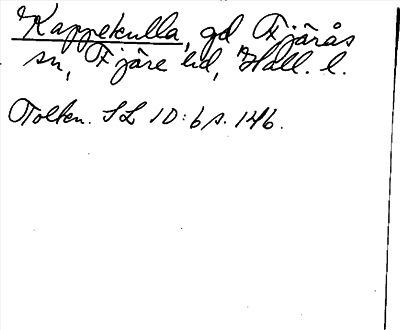 Kappekulla, gd Fjärås
sn, Fjäre hd, Hall. l.
Tolkn. SL 10:6 s. 146.